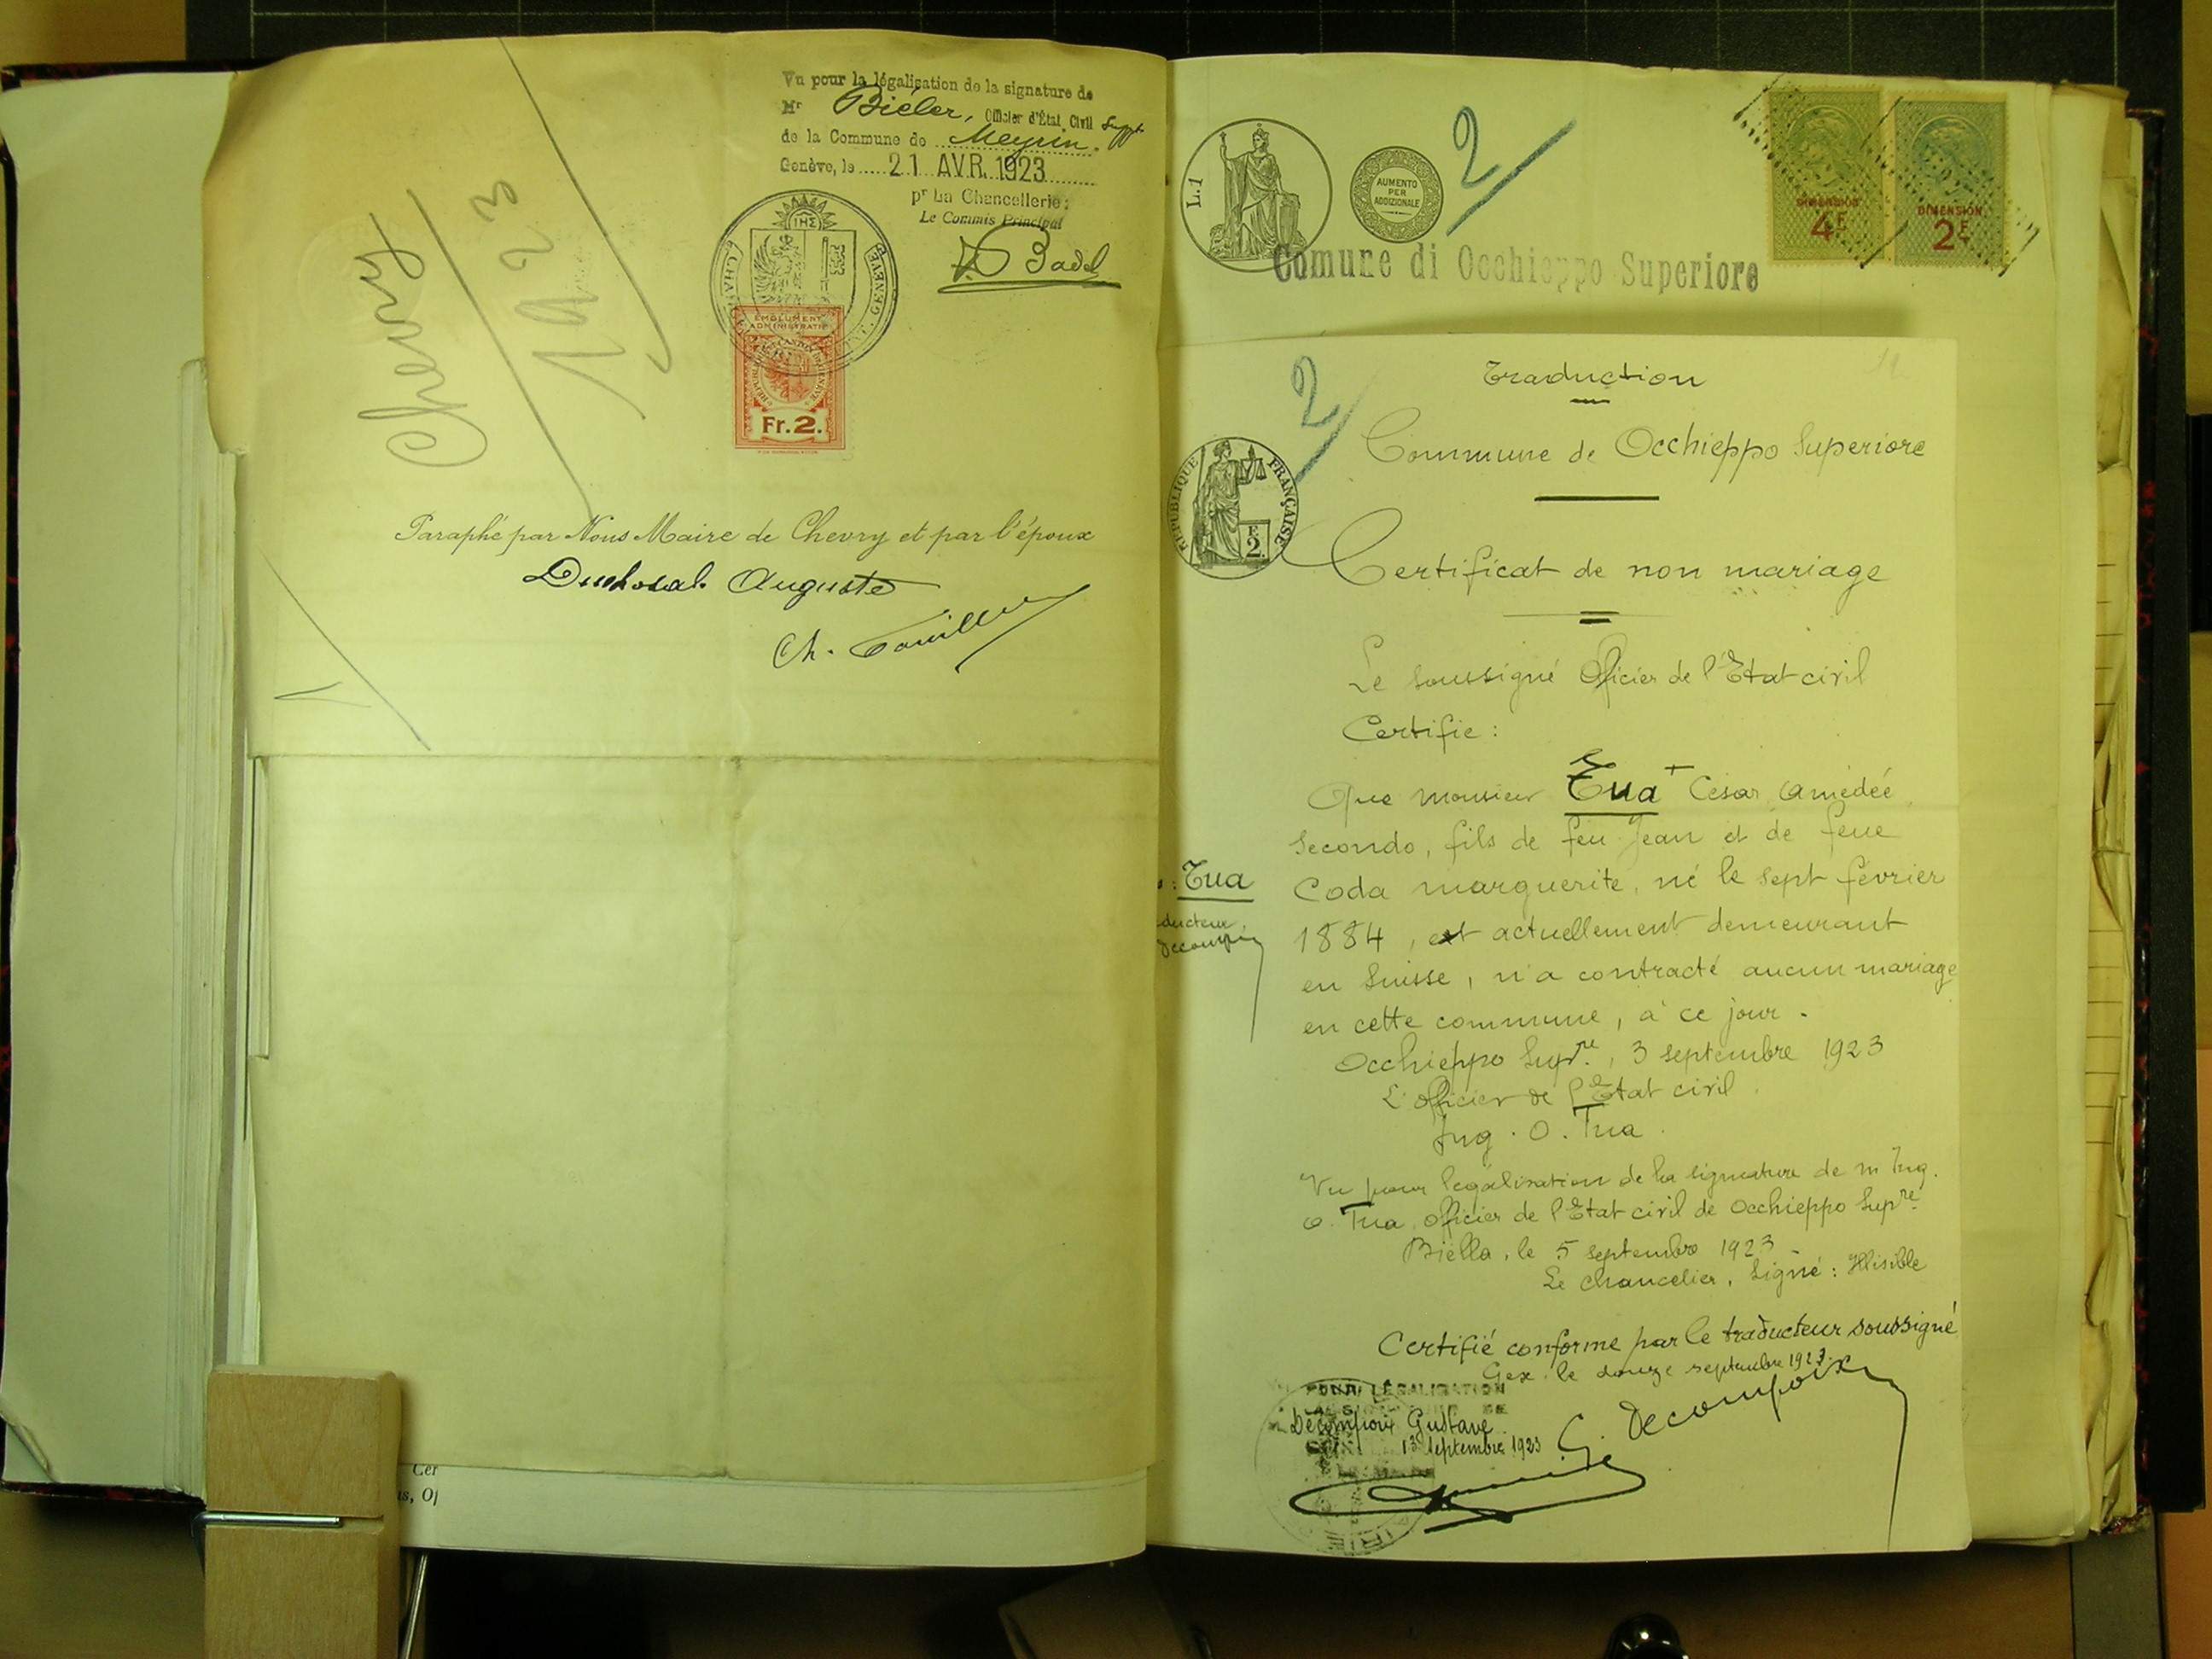 Vu pour la légalisation de la signature de
Mr Biéler, Officier d'État Civil Suppt
de la Commune de Meyrin.
Genève, le 21 AVR. 1923
pr La Chancellerie:
Le Commis Principal
Badel
GENÈVE
IHS
EMOLUMENT
ADMINISTRATIF
Fr. 2.
Chevry
1923
Paraphé par Nous Maire de Chevry et par l'époux
Duchosal Auguste
Cer
L.1
AUMENTO
PER
ADDIZIONALE
2
DIMENSION
4F
DIMENSION
2F
Comune di Occhieppo Superiore
2
REPUBLIQUE FRANÇAISE
F.
2.
Traduction
Commune de Occhieppo Superiore
Certificat de non mariage
Le soussigné Officier de l'Etat civil
Certifie :
Que monsieur Tua + César Amédée
Secondo, fils de feu Jean et de feue
Coda marguerite, né le sept février
1884, est actuellement demeurant
en Suisse, n'a contracté aucun mariage
en cette commune, à ce jour.
Occhieppo Supre, 3 septembre 1923
L'officier de l'Etat civil
Ing. O. Tua
: Tua
ducteur
Decompoix
Vu pour légalisation de la signature de m Ing.
O. Tua, officier de l'Etat civil de Occhieppo Supre
Biella, le 5 septembre 1923
Le chancelier, Signé : Illisible
Certifié conforme par le traducteur soussigné
Gex, le douze septembre 1923.
G. Decompoix
POUR LÉGALISATION
Decompoix Gustave
13 Septembre 1923